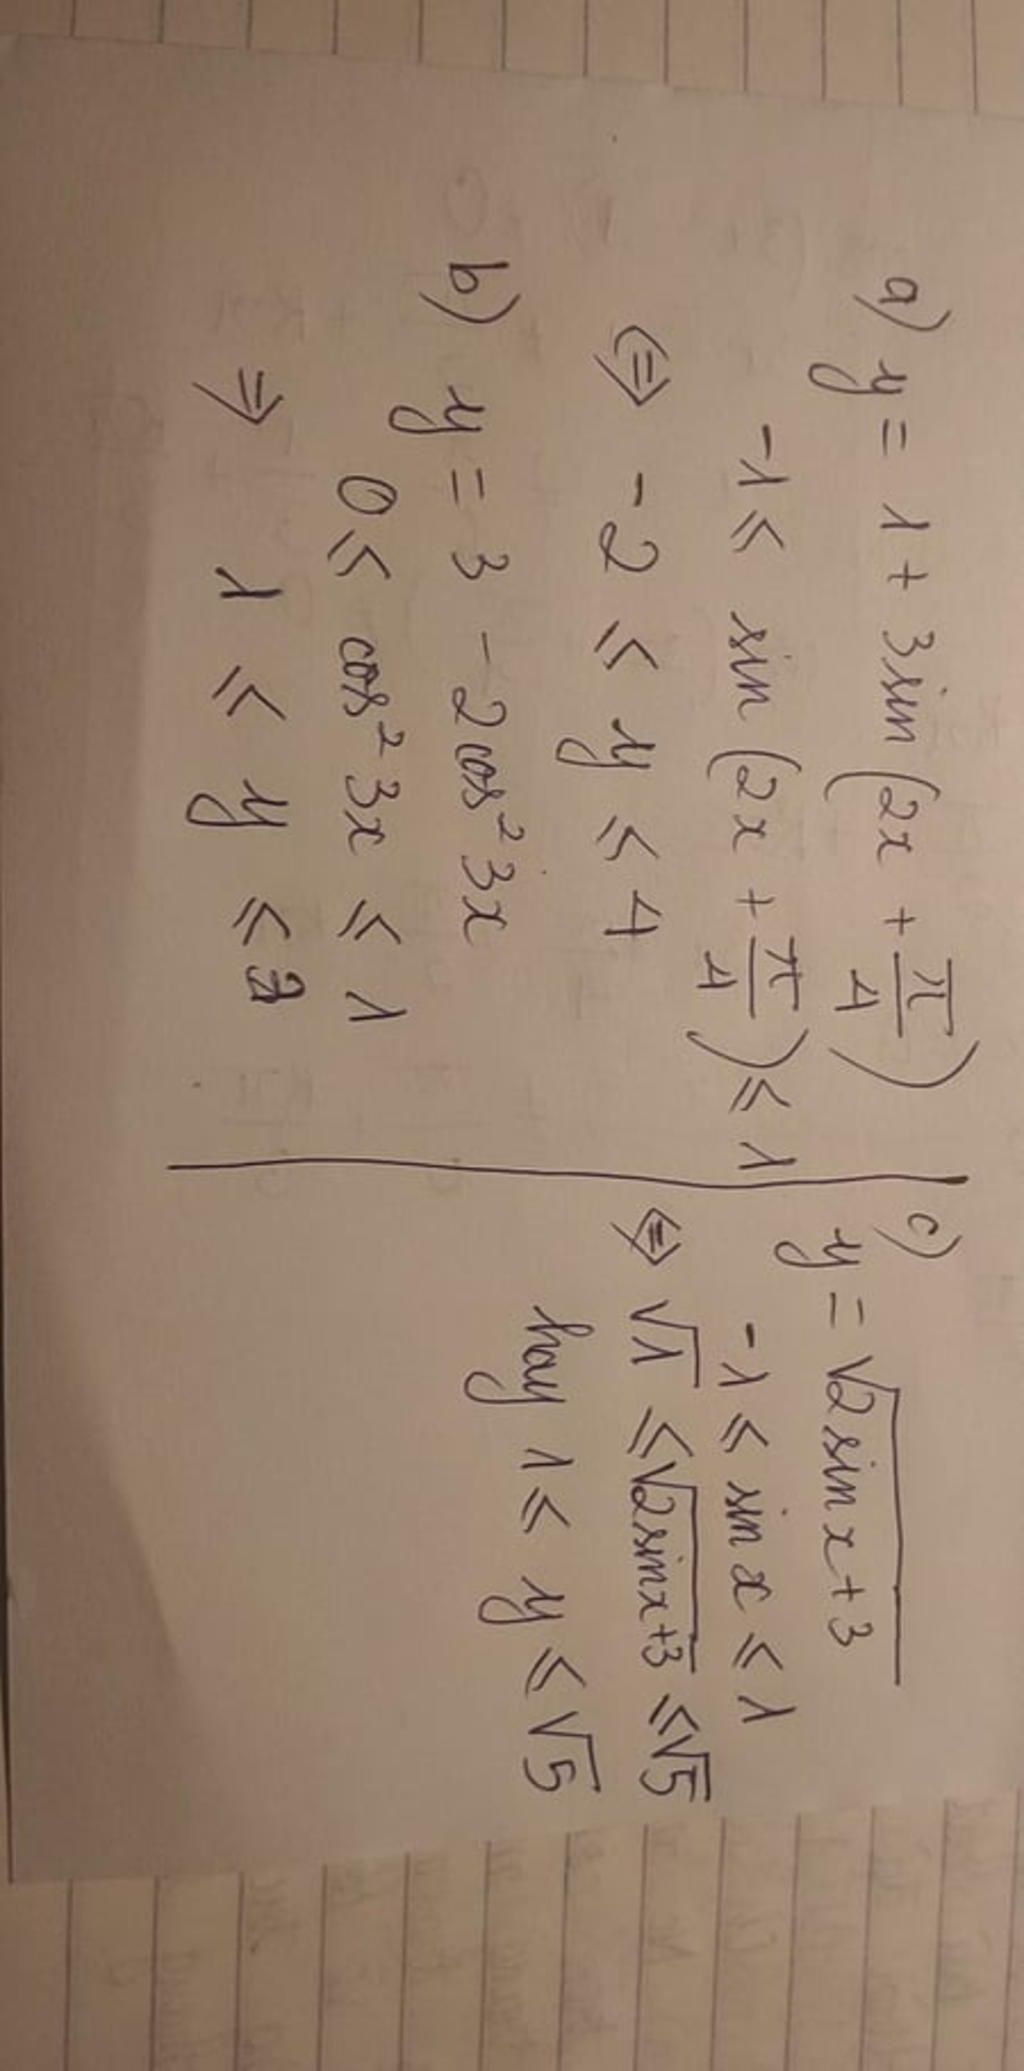 a) y = 1 + 3sin (2x + π/4)
-1 ≤ sin (2x + π/4) ≤ 1
⇔ -2 ≤ y ≤ 4
b) y = 3 - 2cos² 3x
0 ≤ cos² 3x ≤ 1
⇒ 1 ≤ y ≤ 3
c) y = √(2sin x + 3)
-1 ≤ sin x ≤ 1
⇔ √1 ≤ √(2sinx+3) ≤ √5
hay 1 ≤ y ≤ √5